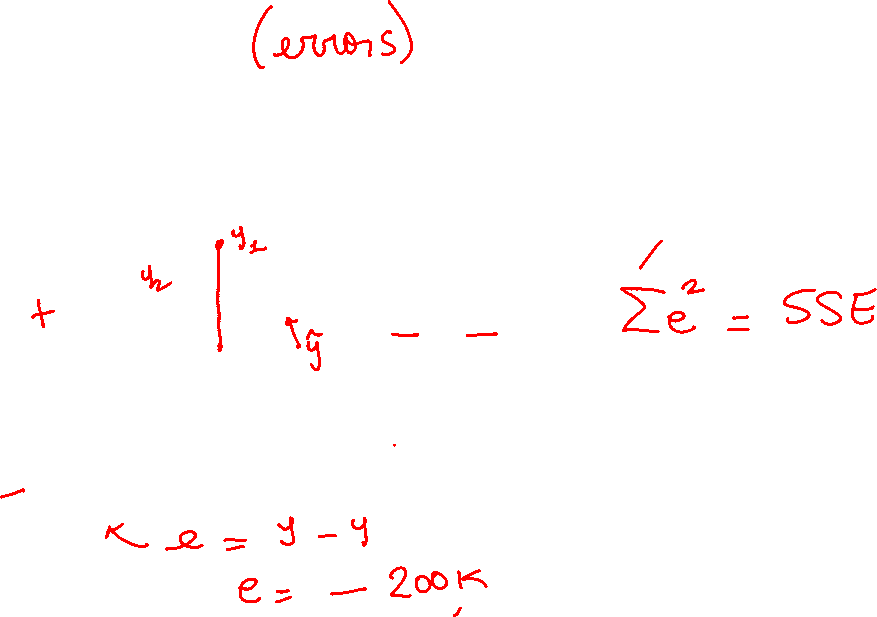 (errors)
y₁
y₂
+
ỹ
- -
Σe² = SSE
-
e = y - y
e = - 200K